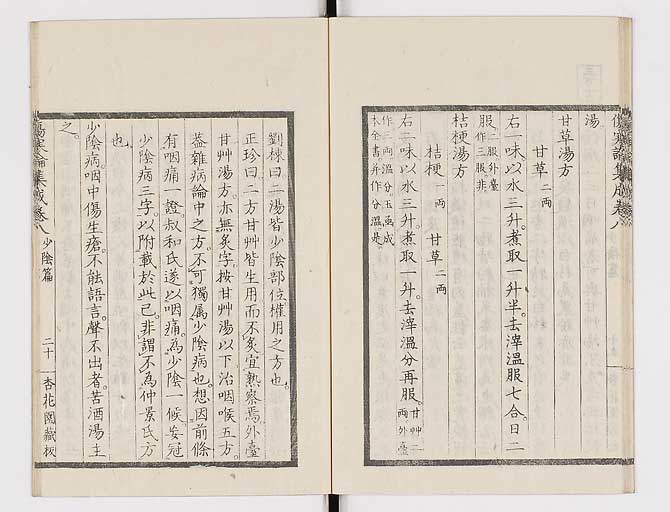 傷寒論集成卷八
湯
甘草湯方
甘草二兩
右一味以水三升煮取一升半去滓溫服七合日二
服二服外臺作三服非
桔梗湯方
桔梗一兩 甘草二兩
右二味以水三升煮取一升去滓溫分再服甘艸二兩外臺
作三兩溫分玉函成本全書並作分溫是
劉棟曰二湯皆少陰部位權用之方也
正珍曰二方甘艸皆生用而不炙宜熟察焉外臺
甘艸湯方亦無炙字按甘艸湯以下治咽喉五方
葢雜病論中之方不可獨屬少陰病也想因前條
有咽痛一證叔和氏遂以咽痛為少陰一候妄冠
少陰病三字以附載於此已非謂不為仲景氏方
也
少陰病咽中傷生瘡不能語言聲不出者苦酒湯主
之
傷寒論集成卷八 少陰篇 二十 杏花園藏板